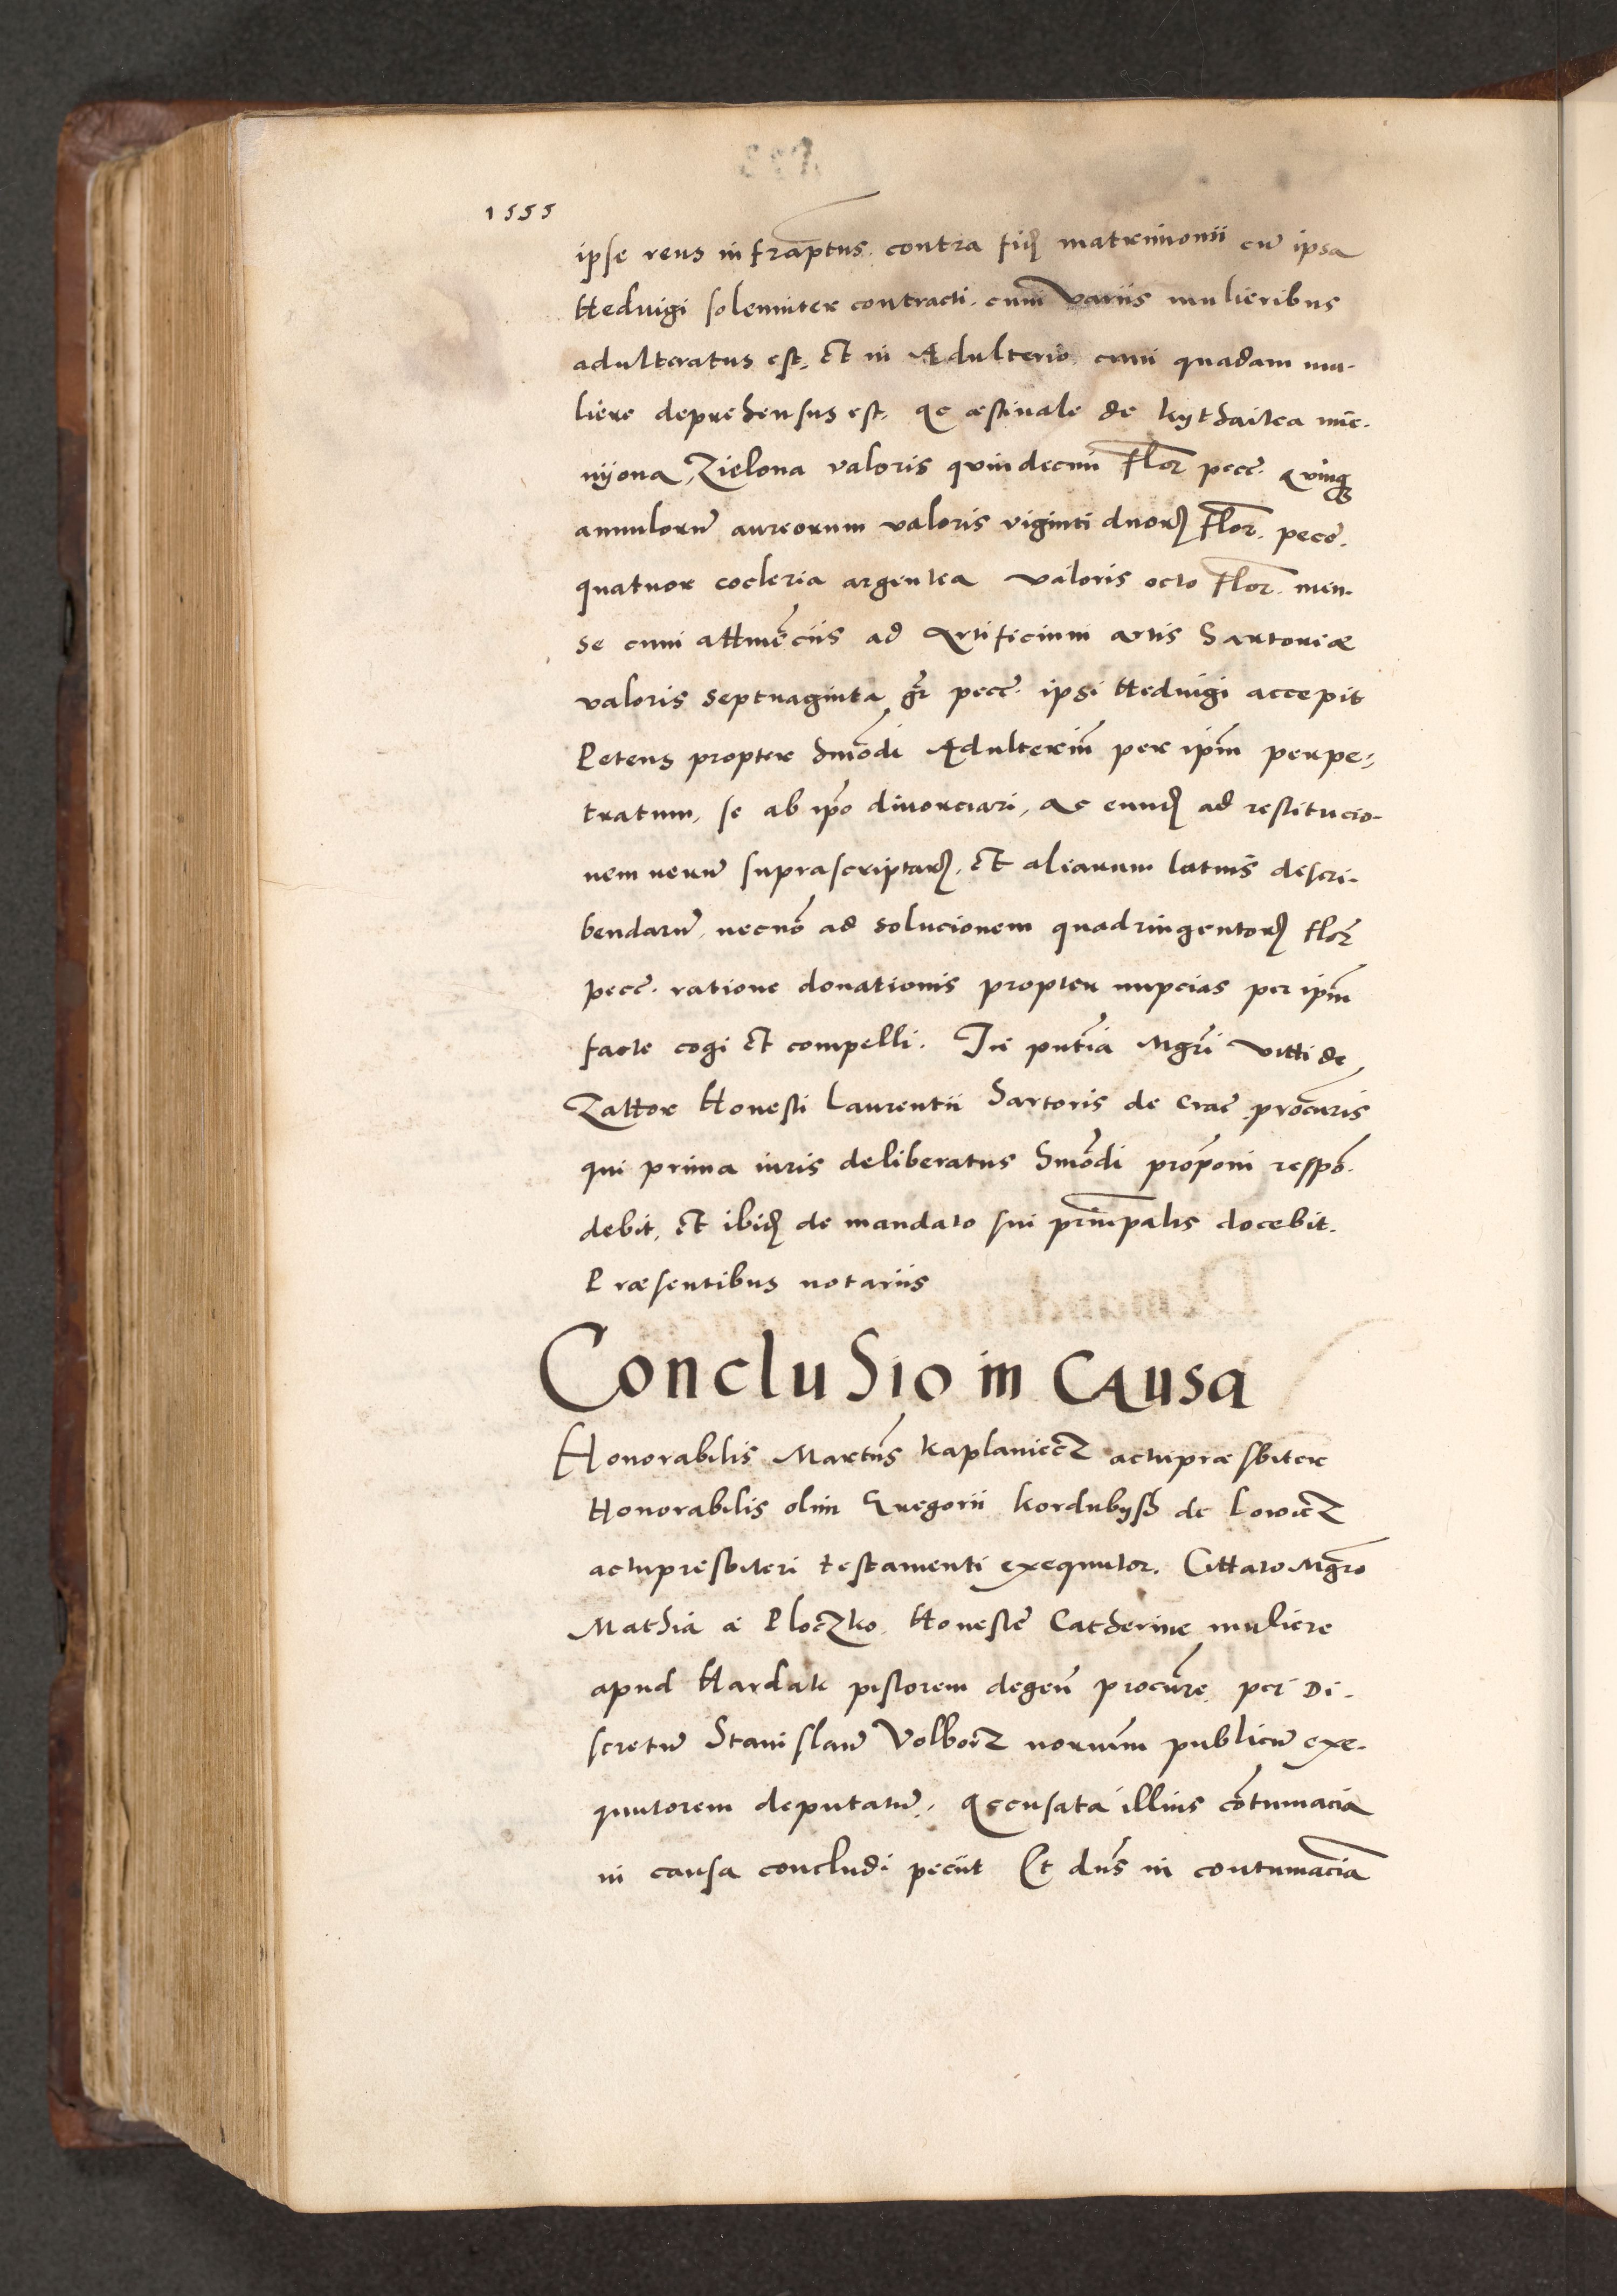 1555
ipse reus infraptus contra fidꝫ matrimonii cū ipsa
Heduigi solemniter contracti. cum variis mulieribus
adulteratus est, et in Adulterio cum quadam mu-
liere deprehensus est. Ac æstiuale de kythaitea
Zielona valoris quindecim Flor pecc. quinqꝫ
annulorū aureorum valoris viginti duorꝫ Flor. pecc.
quatuor cocleria argentea valoris octo Flor. men-
se cum attinēciis ad Artificium artis Sartoriæ
valoris septuaginta gr pecc. ipsi Heduigi accepit
Petens propter hmōdi Adulteriū per ipm̄ perpe-
tratum, se ab ip̄o diuorciari, Ac eundꝫ ad restitucio-
nem rerum suprascriptarꝫ. et aliarum latius descri-
bendarū, necnō ad solucionem quadringentorꝫ Flor
pecc. ratione donationis propter nupcias per ipm̄
facte cogi et compelli. In pn̄tia Mgri Vitti de
Zathor Honesti Laurentii Sartoris de Crac procuris
qui prima iuris deliberatus hmōdi propōni respō-
debit, et ibidꝫ de mandato sui principalis docebit.
Præsentibus notariis
Conclusio in Causa
Honorabilis Martīs Kaplaniecz actupræsbiter
Honorabilis olim Gregorii Kordubysch de Lowicz
actupresbiteri testamenti exequutor. Cittato Mgro
Mathia a Ploczko Honeste Catherine muliere
apud Hardak pistorem degen̄ procure per Di-
scretū Stanislaū Volborz norium publicū exe-
quutorem deputatū, Accusata illius cōtumacia
in causa concludi peciit Et dn̄s in contumaciā